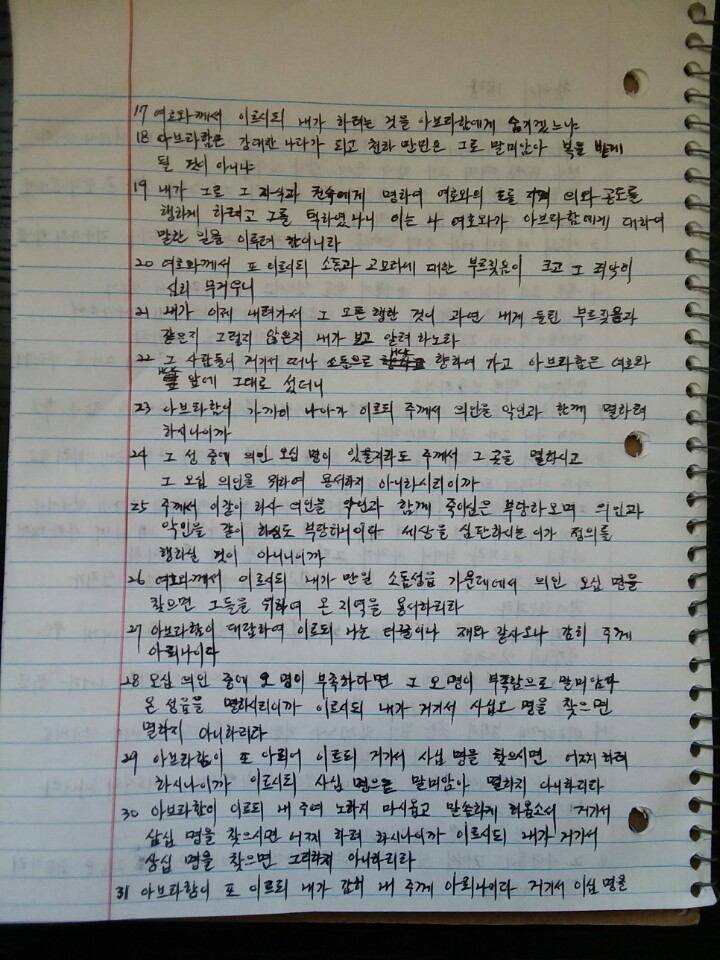 17 여호와께서 이르시되 내가 하려는 것을 아브라함에게 숨기겠느냐
18 아브라함은 강대한 나라가 되고 천하 만민은 그로 말미암아 복을 받게
될 것이 아니냐
19 내가 그로 그 자식과 권속에게 명하여 여호와의 도를 지켜 의와 공도를
행하게 하려고 그를 택하였나니 이는 나 여호와가 아브라함에게 대하여
말한 일을 이루려 함이니라
20 여호와께서 또 이르시되 소돔과 고모라에 대한 부르짖음이 크고 그 죄악이
심히 무거우니
21 내가 이제 내려가서 그 모든 행한 것이 과연 내게 들린 부르짖음과
같은지 그렇지 않은지 내가 보고 알려 하노라
22 그 사람들이 거기서 떠나 소돔으로 향하여 가고 아브라함은 여호와
앞에 그대로 섰더니
23 아브라함이 가까이 나아가 이르되 주께서 의인을 악인과 함께 멸하려
하시나이까
24 그 성 중에 의인 오십 명이 있을지라도 주께서 그 곳을 멸하시고
그 오십 의인을 위하여 용서하지 아니하시리이까
25 주께서 이같이 하사 의인을 악인과 함께 죽이심은 부당하오며 의인과
악인을 같이 하심도 부당하니이다 세상을 심판하시는 이가 정의를
행하실 것이 아니니이까
26 여호와께서 이르시되 내가 만일 소돔성읍 가운데에서 의인 오십 명을
찾으면 그들을 위하여 온 지역을 용서하리라
27 아브라함이 대답하여 이르되 나는 티끌이나 재와 같사오나 감히 주께
아뢰나이다
28 오십 의인 중에 오 명이 부족하다면 그 오 명이 부족함으로 말미암아
온 성읍을 멸하시리이까 이르시되 내가 거기서 사십오 명을 찾으면
멸하지 아니하리라
29 아브라함이 또 아뢰어 이르되 거기서 사십 명을 찾으시면 어찌 하려
하시나이까 이르시되 사십 명으로 말미암아 멸하지 아니하리라
30 아브라함이 이르되 내 주여 노하지 마시옵고 말씀하게 하옵소서 거기서
삼십 명을 찾으시면 어찌 하려 하시나이까 이르시되 내가 거기서
삼십 명을 찾으면 그리하지 아니하리라
31 아브라함이 또 이르되 내가 감히 내 주께 아뢰나이다 거기서 이십 명을